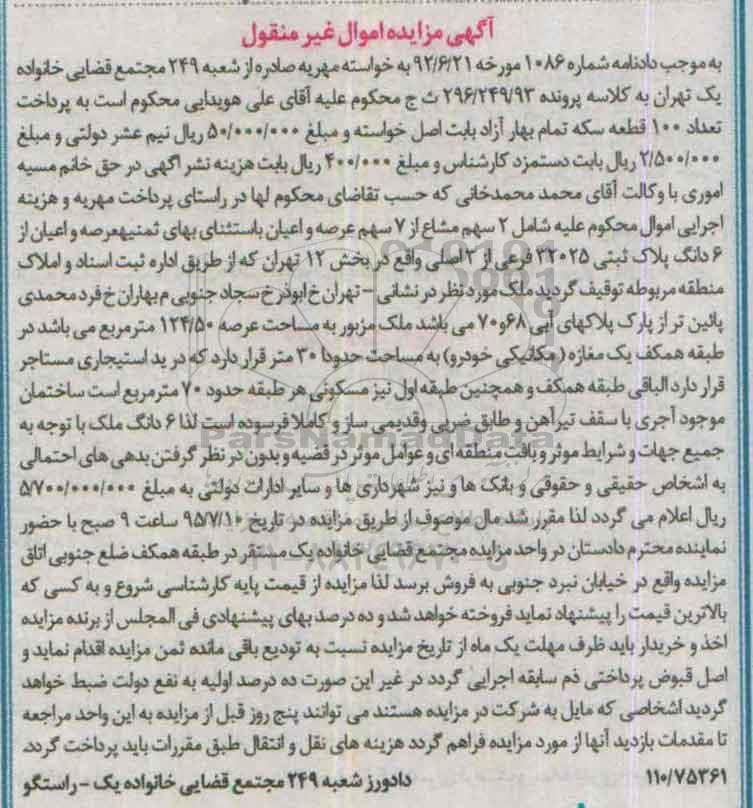 آگهی مزایده اموال غیر منقول
به موجب دادنامه شماره ۱۰۸۶ مورخه ۹۲/۶/۲۱ به خواسته مهریه صادره از شعبه ۲۴۹ مجتمع قضایی خانواده
یک تهران به کلاسه پرونده ۲۹۶/۲۴۹/۹۳ ث ج محکوم علیه آقای علی هویدایی محکوم است به پرداخت
تعداد ۱۰۰ قطعه سکه تمام بهار آزاد بابت اصل خواسته و مبلغ ۵۰/۰۰۰/۰۰۰ ریال نیم عشر دولتی و مبلغ
۲/۵۰۰/۰۰۰ ریال بابت دستمزد کارشناس و مبلغ ۴۰۰/۰۰۰ ریال بابت هزینه نشر اگهی در حق خانم مسیه
اموری با وکالت آقای محمد محمدخانی که حسب تقاضای محکوم لها در راستای پرداخت مهریه و هزینه
اجرایی اموال محکوم علیه شامل ۲ سهم مشاع از ۷ سهم عرصه و اعیان باستثنای بهای ثمنیهعرصه و اعیان از
۶ دانگ پلاک ثبتی ۲۲۰۲۵ فرعی از ۲ اصلی واقع در بخش ۱۲ تهران که از طریق اداره ثبت اسناد و املاک
منطقه مربوطه توقیف گردید ملک مورد نظر در نشانی – تهران خ ابوذر خ سجاد جنوبی م بهاران خ فرد محمدی
پائین تر از پارک پلاکهای آبی ۶۸و۷۰ می باشد ملک مزبور به مساحت عرصه ۱۲۴/۵۰ مترمربع می باشد در
طبقه همکف یک مغازه (مکانیکی خودرو) به مساحت حدودا ۳۰ متر قرار دارد که در ید استیجاری مستاجر
قرار دارد الباقی طبقه همکف و همچنین طبقه اول نیز مسکونی هر طبقه حدود ۷۰ مترمربع است ساختمان
موجود آجری با سقف تیرآهن و طاق ضربی وقدیمی ساز و کاملا فرسوده است لذا ۶ دانگ ملک با توجه به
جمیع جهات و شرایط موثر و بافت منطقه ای و عوامل موثر در قضیه و بدون در نظر گرفتن بدهی های احتمالی
به اشخاص حقیقی و حقوقی و بانک ها و نیز شهرداری ها و سایر ادارات دولتی به مبلغ ۵/۷۰۰/۰۰۰/۰۰۰
ریال اعلام می گردد لذا مقرر شد مال موصوف از طریق مزایده در تاریخ ۹۵/۷/۱۰ ساعت ۹ صبح با حضور
نماینده محترم دادستان در واحد مزایده مجتمع قضایی خانواده یک مستقر در طبقه همکف ضلع جنوبی اتاق
مزایده واقع در خیابان نبرد جنوبی به فروش برسد لذا مزایده از قیمت پایه کارشناسی شروع و به کسی که
بالاترین قیمت را پیشنهاد نماید فروخته خواهد شد و ده درصد بهای پیشنهادی فی المجلس از برنده مزایده
اخذ و خریدار باید ظرف مهلت یک ماه از تاریخ مزایده نسبت به تودیع باقی مانده ثمن مزایده اقدام نماید و
اصل قبوض پرداختی ذم سابقه اجرایی گردد در غیر این صورت ده درصد اولیه به نفع دولت ضبط خواهد
گردید اشخاصی که مایل به شرکت در مزایده هستند می توانند پنج روز قبل از مزایده به این واحد مراجعه
تا مقدمات بازدید آنها از مورد مزایده فراهم گردد هزینه های نقل و انتقال طبق مقررات باید پرداخت گردد.
۱۱۰/۷۵۳۶۱ دادورز شعبه ۲۴۹ مجتمع قضایی خانواده یک – راستگو
ParsNamadData